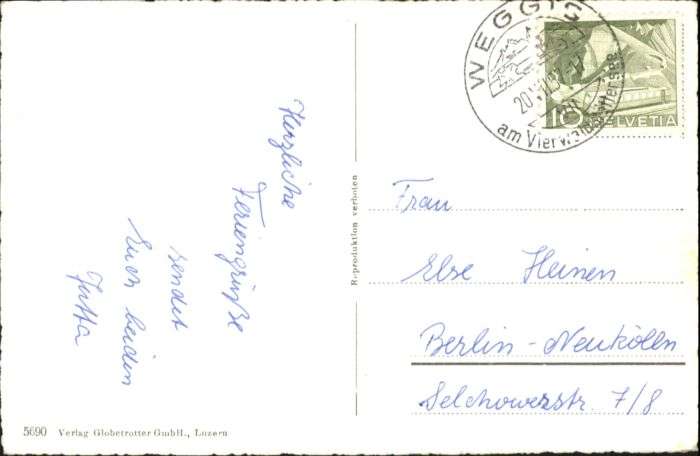 WEGGIS
20.
am Vierwaldstättersee
10 HELVETIA
Herzliche
Feriengrüße
sendet
Euch beiden
Jutta
Reproduktion verboten
Frau
Else Heinen
Berlin - Neukölln
Selchowerstr. 7/8
5690 Verlag Globetrotter GmbH., Luzern